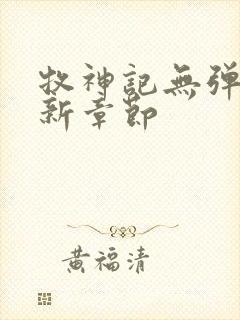 牧神記無弹
新章節
黄福清